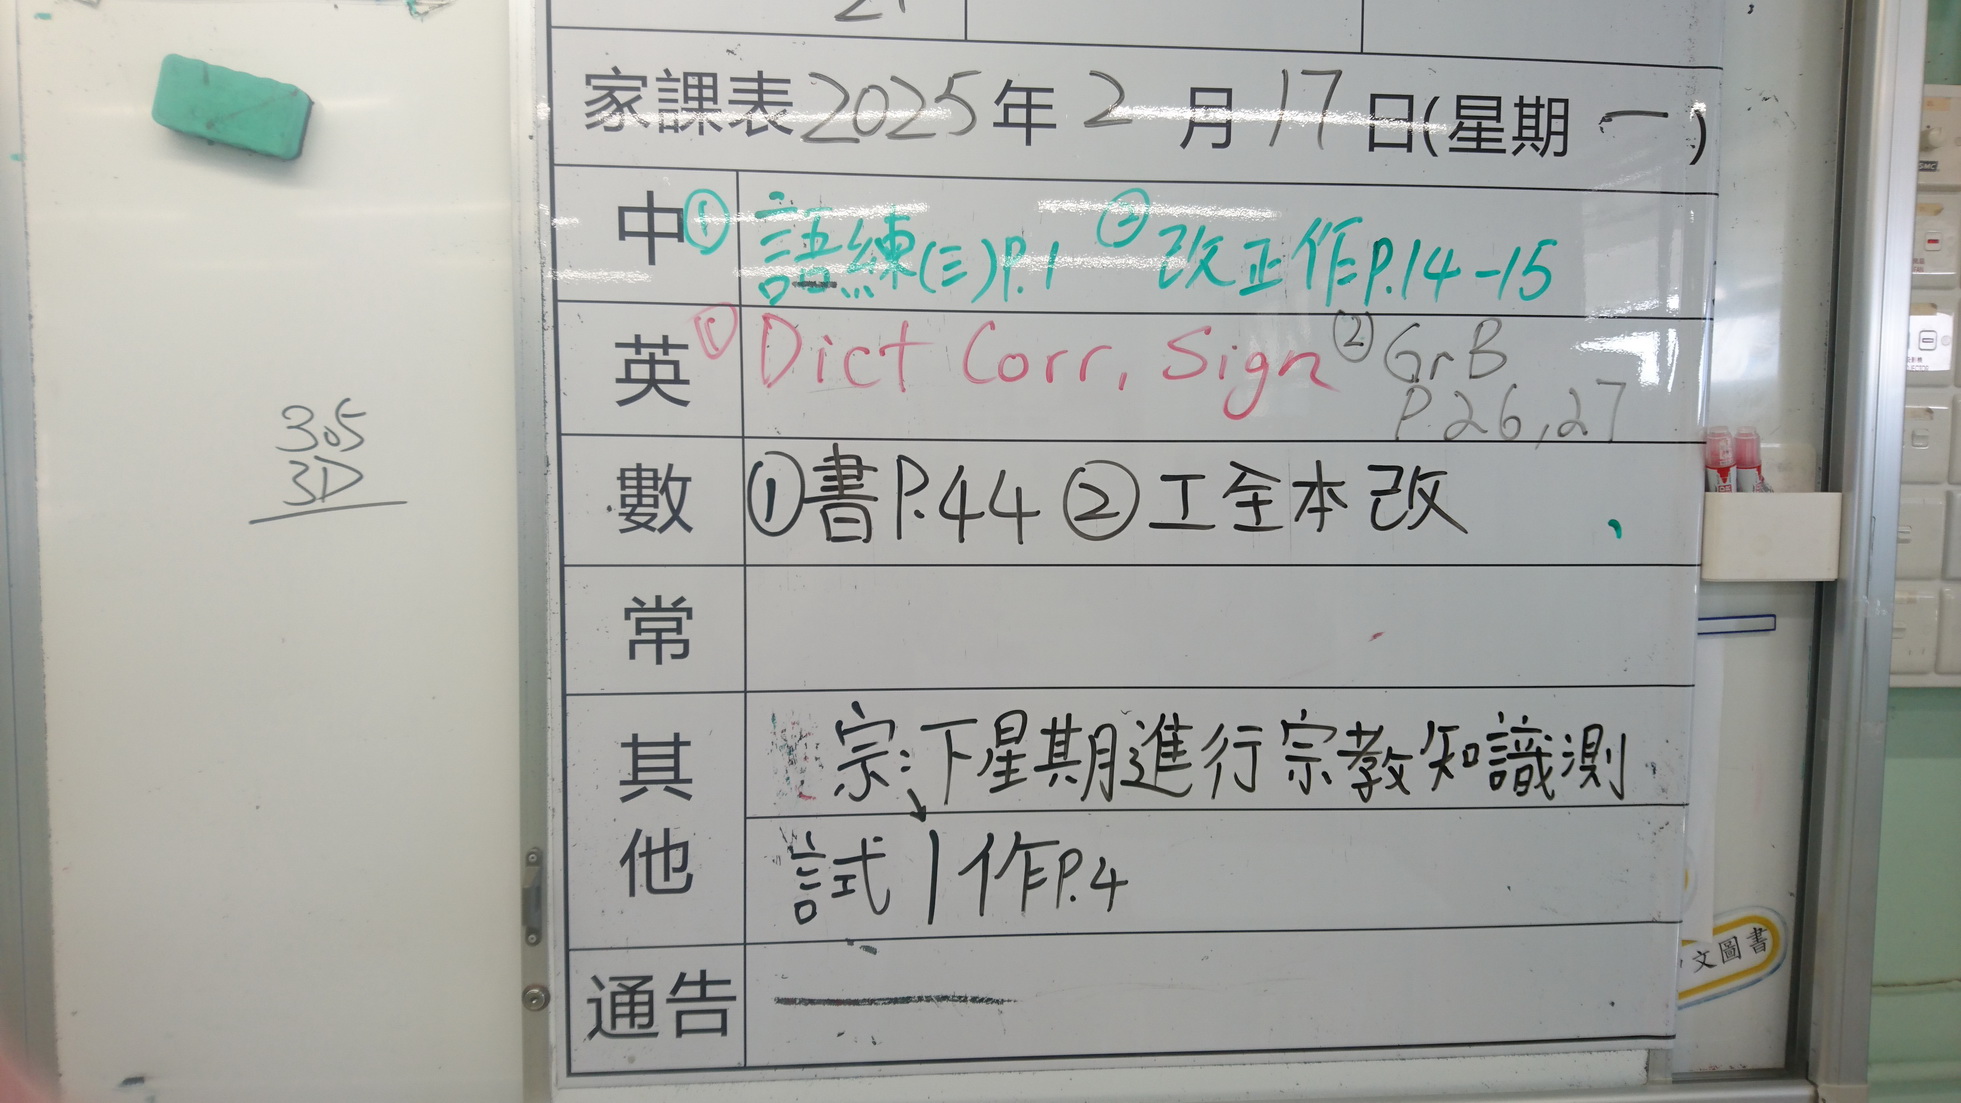 家課表2025年2月17日(星期一)
中 ①語練(三)P.1 ②改正作P.14-15
英 ①Dict Corr, Sign ②GrB
P.26,27
305
3D
數 ①書P.44 ②工全本改
常
其他 宗:下星期進行宗教知識測
試|作P.4
通告
文圖書